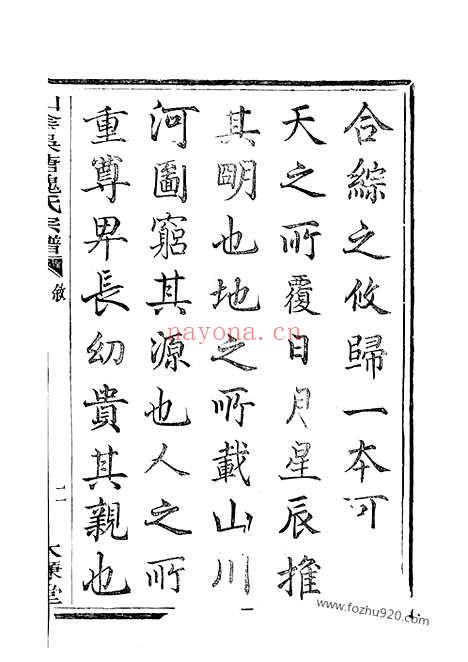 合綜之攸歸一本可
天之所覆日月星辰推
其明也地之所載山川
河圖窮其源也人之所
重尊畀長幼貴其親也
山陰吳塘魏氏宗譜
敘
二
nayona.cn
www.fozhu920.com